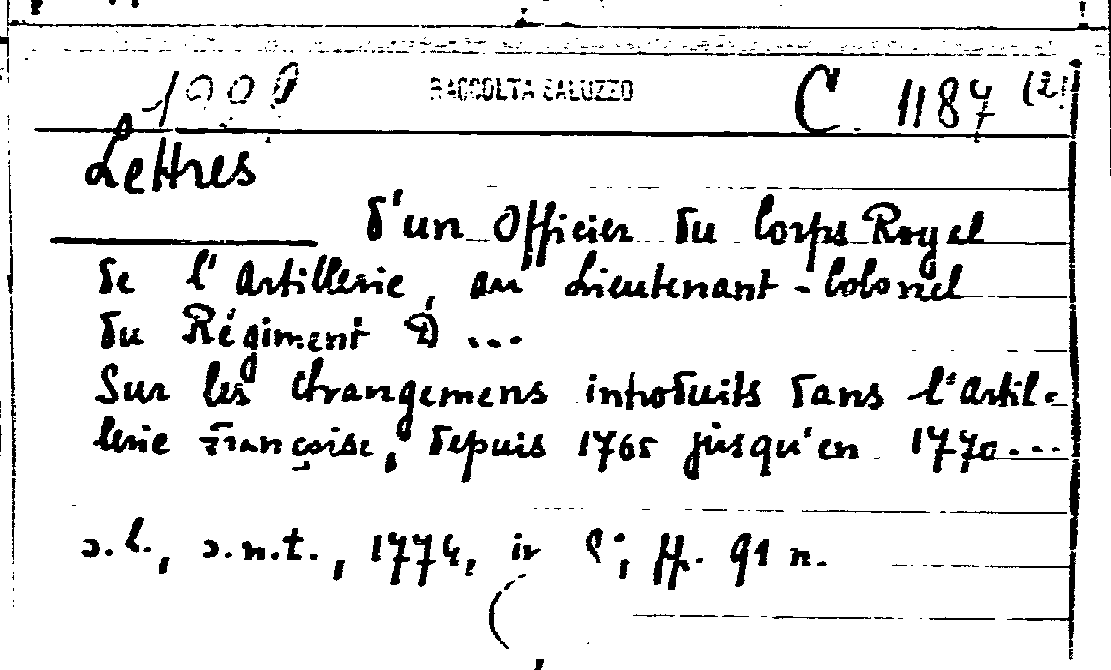 RACCOLTA SALUZZO C 1187 (2)
Lettres
d'un Officier du Corps Royal
de l'Artillerie, au Lieutenant-Colonel
du Régiment D ...
Sur les changemens introduits dans l'Artil-
lerie Françoise, depuis 1765 jusqu'en 1770...
s.l., s.n.t., 1774, in 8°, ff. 91 n.